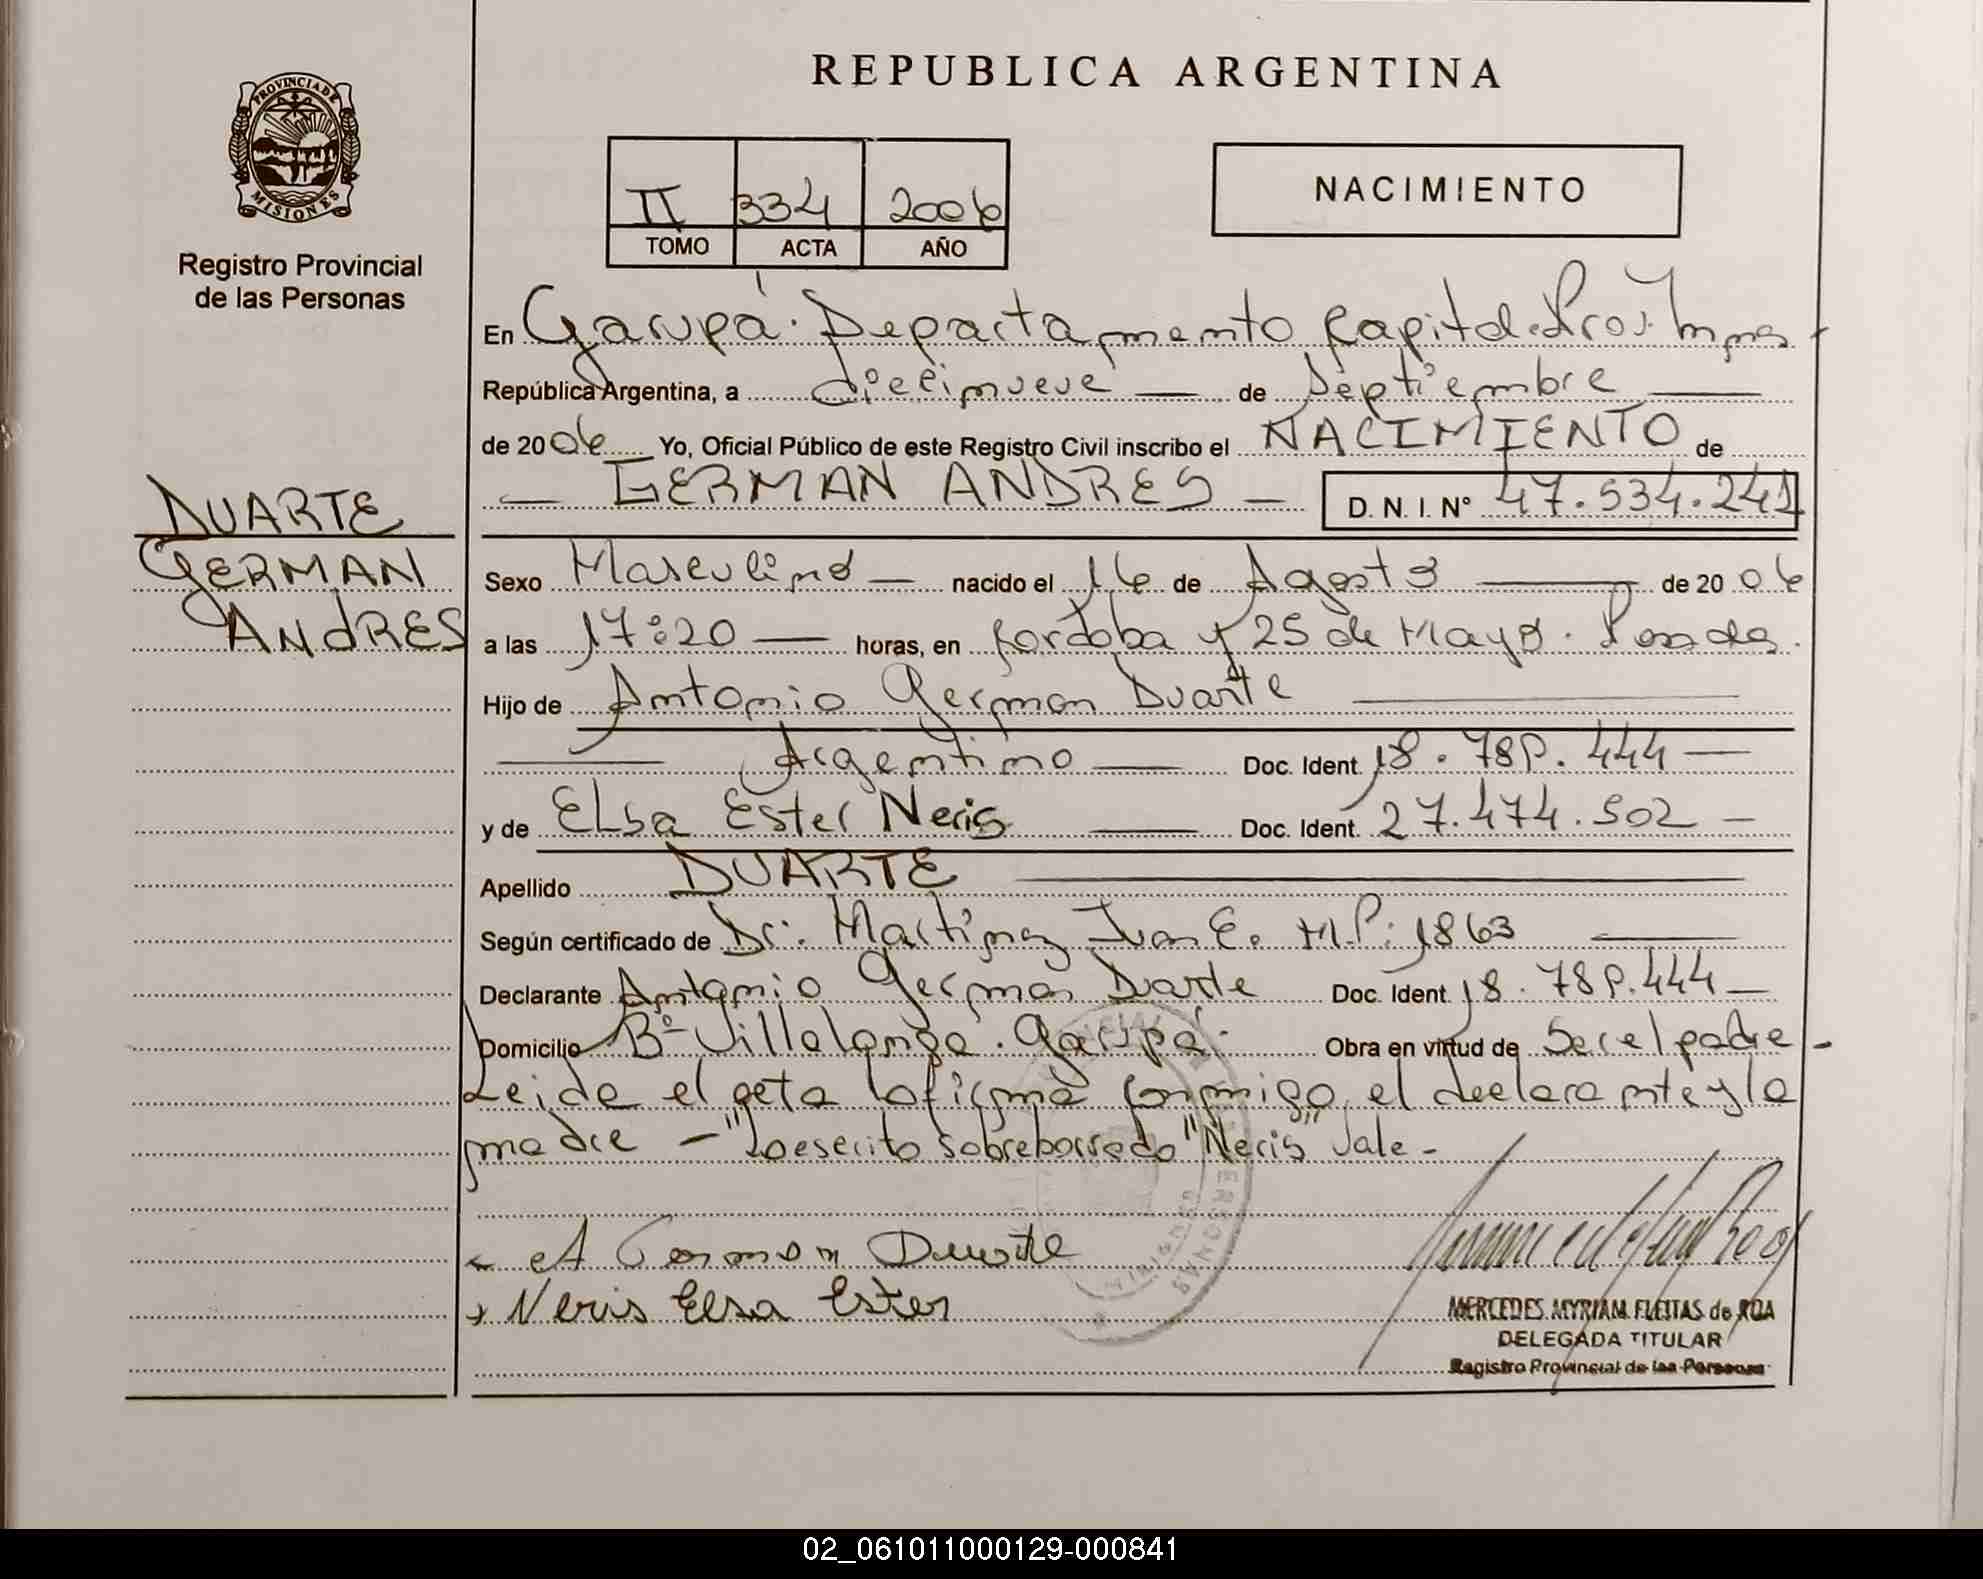 REPUBLICA ARGENTINA
PROVINCIA DE
MISIONES
Registro Provincial
de las Personas
II 334 2006
TOMO ACTA AÑO
NACIMIENTO
En Garupá. Departamento Capital. Prov. Mnes
República Argentina, a diecinueve de Septiembre
de 2006 Yo, Oficial Público de este Registro Civil inscribo el NACIMIENTO de
GERMAN ANDRES D. N. I. N° 47.534.241
DUARTE
GERMAN
ANDRES
Sexo Masculino nacido el 16 de Agosto de 2006
a las 17:20 horas, en Cordoba y 25 de Mayo. Posadas.
Hijo de Antonio German Duarte
Argentino Doc. Ident. 18.789.444
y de Elsa Ester Neris Doc. Ident. 27.474.502
Apellido DUARTE
Según certificado de Dr. Martinez Juan E. M.P: 1863
Declarante Antonio German Duarte Doc. Ident. 18.789.444
Domicilio B° Villalonga. Garupá. Obra en virtud de Ser el padre
Leida el acta la firma conmigo el declarante y la
madre - "Lo escrito sobreborrado "Neris" Vale -
A German Duarte
x Neris Elsa Ester
MERCEDES MYRIAM FLEITAS de ROA
DELEGADA TITULAR
Registro Provincial de las Personas
02_061011000129-000841